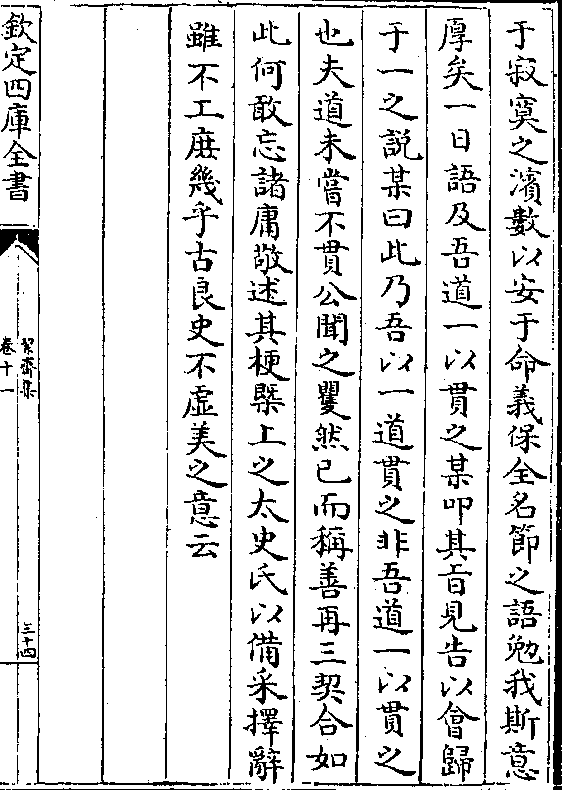 于寂寞之濱數以安于命義保全名節之語勉我斯意
厚矣一日語及吾道一以貫之某叩其旨見告以會歸
于一之説某曰此乃吾以一道貫之非吾道一以貫之
也夫道未嘗不貫公聞之矍然已而稱善再三契合如
此何敢忘諸庸敬述其梗槩上之太史氏以備采擇辭
雖不工庶幾乎古良史不虚美之意云
欽定四庫全書
絜齋集
卷十一
三十四